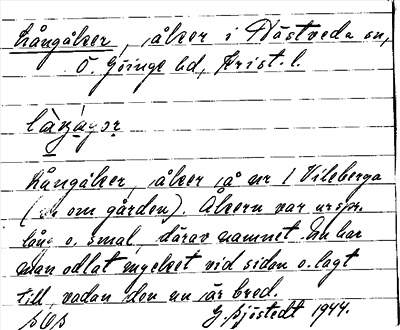 Långåker, åker i Nästveda sn,
Ö. Göinge hd, Krist. l.
làŋágər
Långåker, åker å nr 1 Vileberga
( om gården). Åkern var urspr.
lång o. smal, därav namnet. Nu har
man odlat mycket vid sidan o. lagt
till, vadan den nu är bred.
G. Sjöstedt 1944.